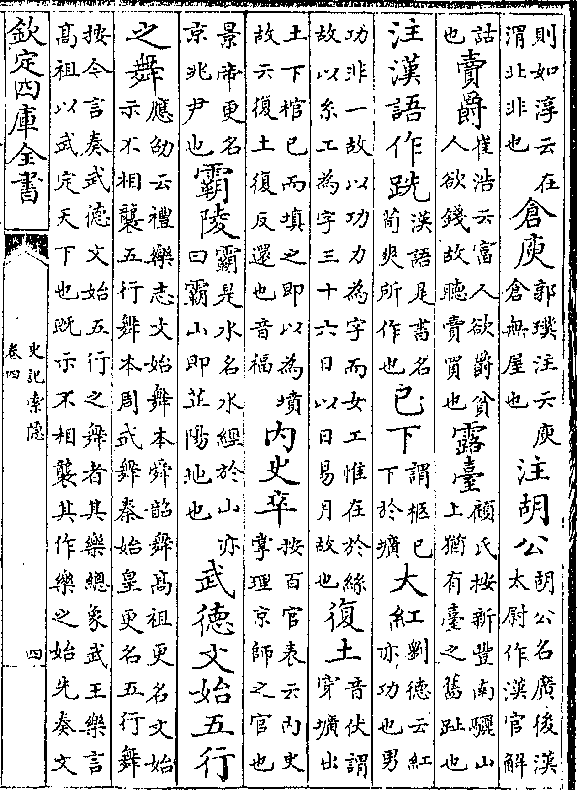 則如淳云在渭北非也倉庾郭璞注云庾倉無屋也注胡公胡公名廣後漢太尉作漢官解
詁也賣爵崔浩云富人欲爵貧人欲錢故聽賣買也露臺顧氏按新豐南驪山上猶有臺之舊趾也
注漢語作跣漢語是書名荀爽所作也已下謂柩已下於壙大紅劉德云紅亦功也男
功非一故以功力為字而女工惟在於絲故以糸工為字三十六日以日易月故也復土音伏謂穿壙出
土下棺已而填之即以為墳故云復土復反還也音福内史卒按百官表云内史掌理京師之官也
景帝更名京兆尹也霸陵霸是水名水經於山亦曰霸山即芷陽地也武德文始五行
之舞應劭云禮樂志文始舞本舜韶舞髙祖更名文始示不相襲五行舞本周武舞秦始皇更名五行舞
按今言奏武德文始五行之舞者其樂總象武王樂言髙祖以武定天下也既示不相襲其作樂之始先奏文
欽定四庫全書
史記索隱
卷四
四